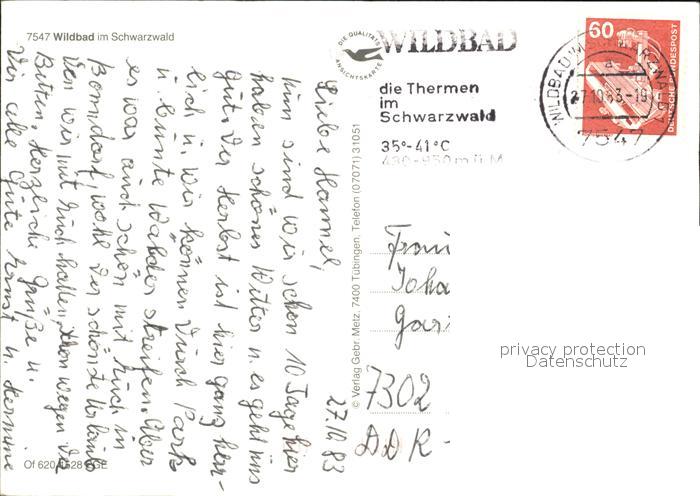 7547 Wildbad im Schwarzwald
DIE QUALITÄTS
ANSICHTSKARTE
WILDBAD
die Thermen
im
Schwarzwald
35°-41°C
430-950 m ü M
WILDBAD IM SCHWARZWALD
a
27.10.83-19
7547
60
DEUTSCHE BUNDESPOST
27.10.83
Liebe Hannel,
nun sind wir schon 10 Tage hier
haben schönes Wetter u. es geht uns
gut. Der Herbst ist hier ganz herr-
lich u. wir können durch Park
u. bunte Wälder streifen. Aber
es war auch schön mit Euch in
Bonndorf, wohl der schönste Urlaub
den wir mit Euch hatten, schon wegen der
Betten. Herzliche Grüße u.
Dir alles Gute Ernst u. Hermine
© Verlag Gebr. Metz, 7400 Tübingen, Telefon (07071) 31051
Frau
Joha
Gar
7302
DDR-
privacy protection
Datenschutz
Of 620